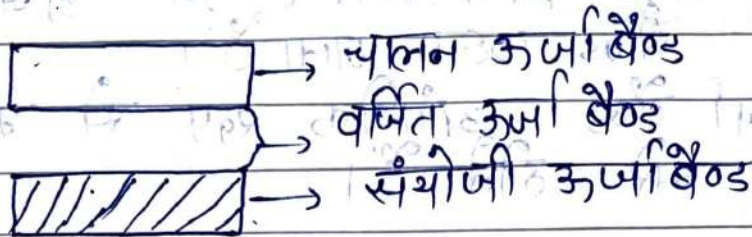 चालन ऊर्जा बैण्ड
वर्जित ऊर्जा बैण्ड
संयोजी ऊर्जा बैण्ड